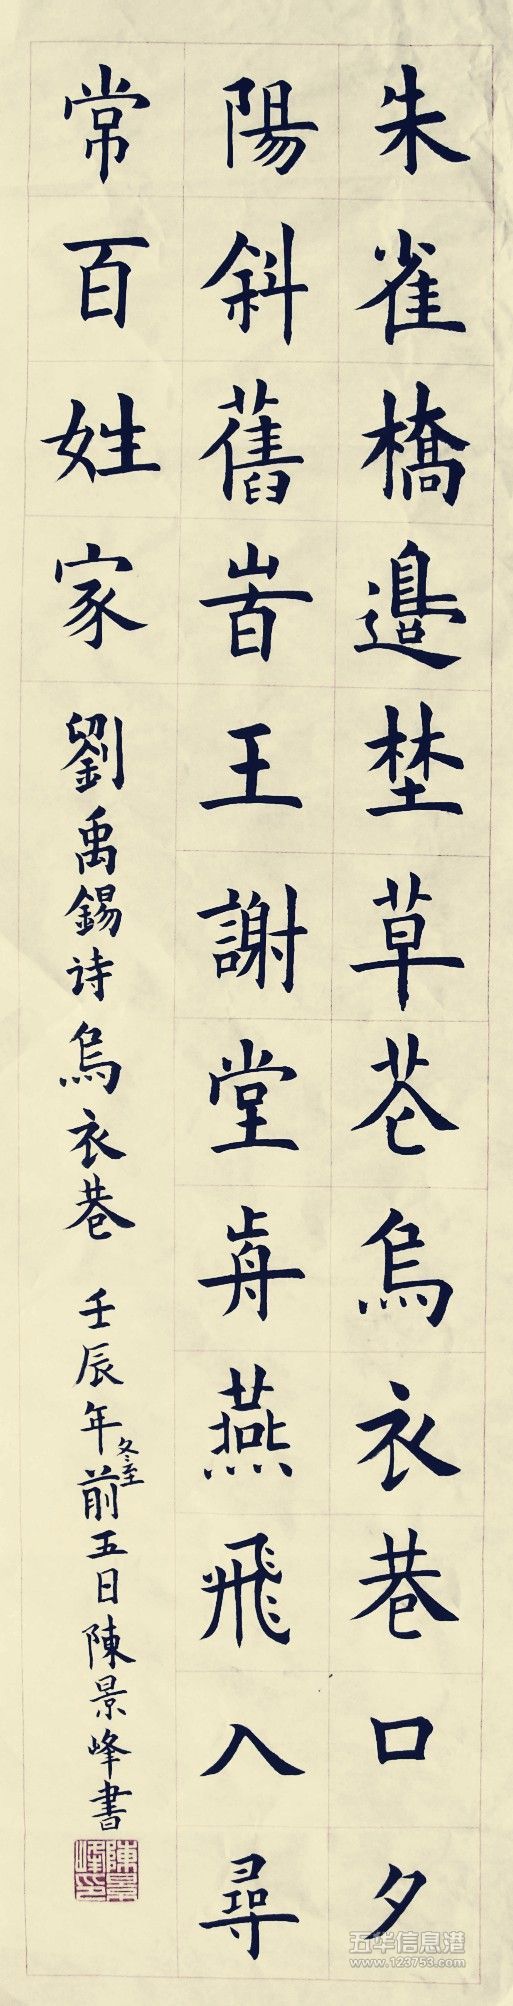 朱雀橋邉埜草苍烏衣巷口夕
陽斜舊峕王謝堂歬燕飛入尋
常百姓家
劉禹錫诗烏衣巷 壬辰年冬至前五日陳景峰書
陳景峰印
五华信息港
www.123753.com